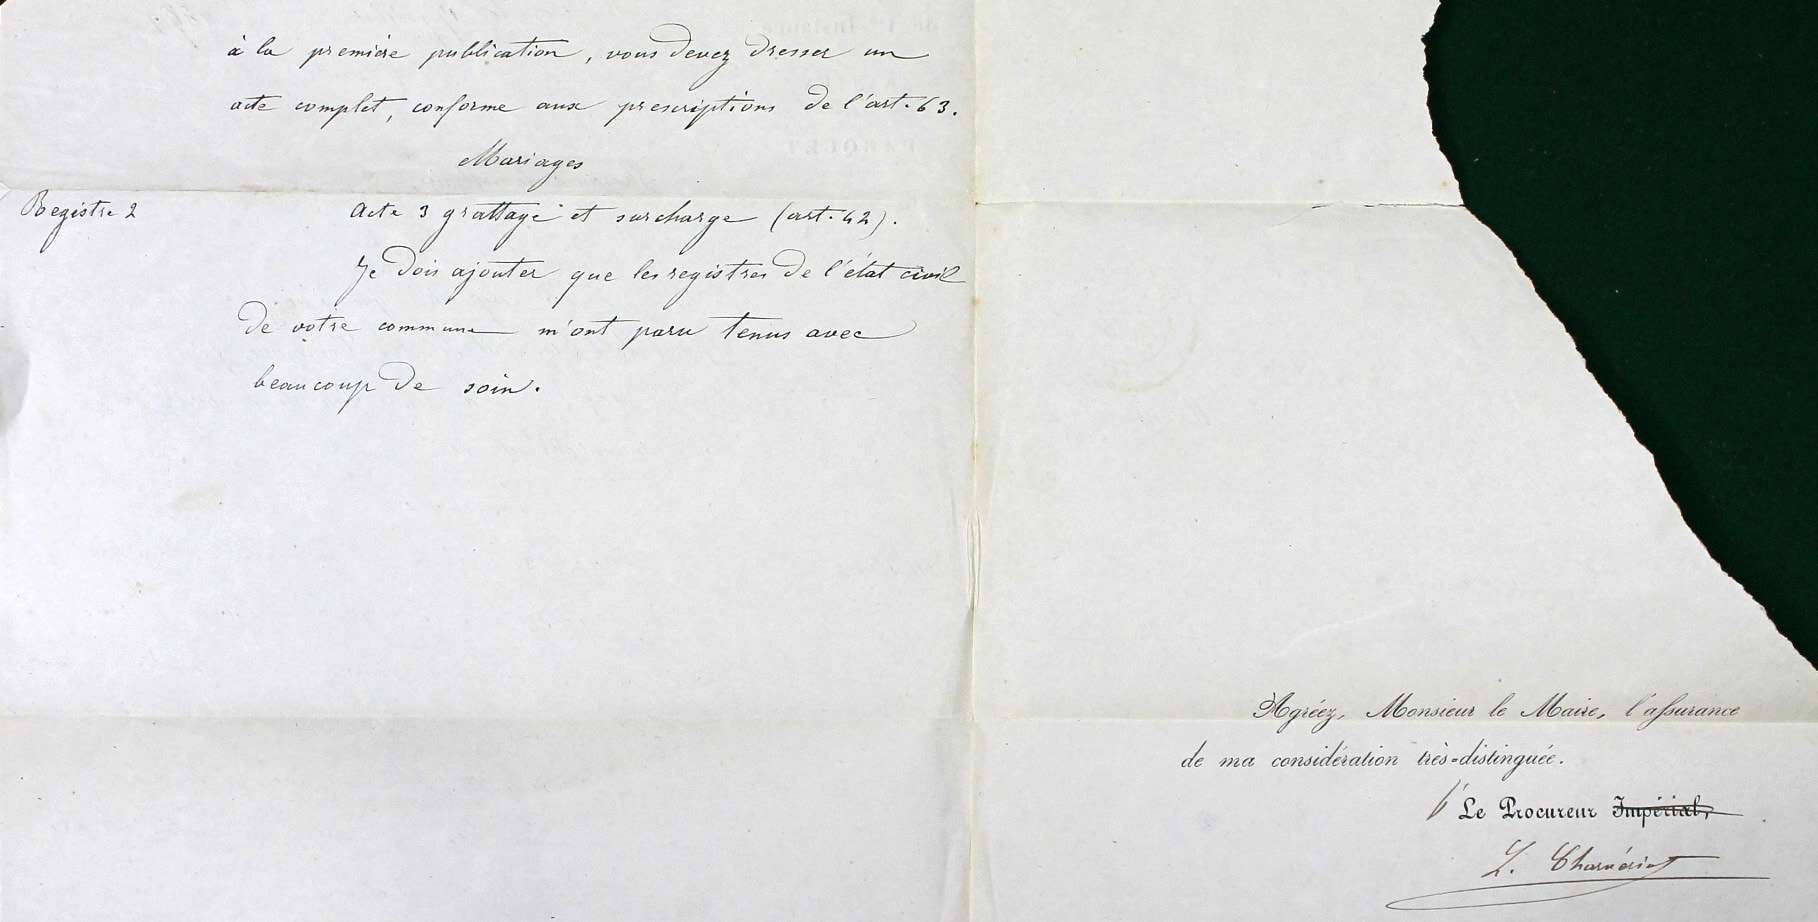 à la première publication, vous devez dresser un
acte complet, conforme aux prescriptions de l'art. 63.
Mariages
Registre 2 Acte 3 grattage et surcharge (art. 42).
Je dois ajouter que les registres de l'état civil
de votre commune m'ont paru tenus avec
beaucoup de soin.
Agréez, Monsieur le Maire, l'assurance
de ma considération très-distinguée.
Le Procureur Impérial,
PARQUET